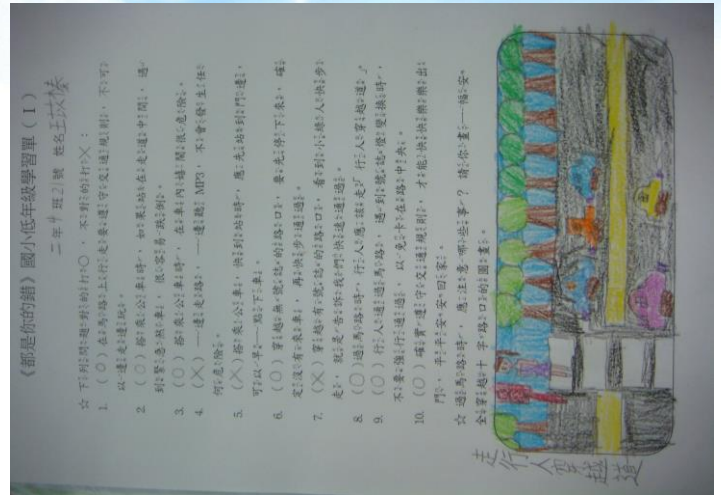 《都是你的錯》國小低年級學習單(I)
二年4班21號 姓名
☆ 下列問題對的打○,不對的打╳:
1. (○)在馬路上行走要遵守交通規則,不可
以邊走邊玩。
2. (○)搭乘公車時,如果站在走道中間,遇
到緊急煞車,很容易跌倒。
3. (○)搭乘公車時,在車內嬉鬧很危險。
4. (╳)一邊走路,一邊聽MP3,不會發生任
何危險。
5. (╳)搭乘公車,快到站時,應先站到門邊,
可以早一點下車。
6. (○)穿越無號誌的路口,要先停下來,確
定沒有來車,再快步通過。
7. (╳)穿越有號誌的路口,看到小綠人快步
走,就是告訴我們快速通過。
8. (○)過馬路時,行人應該走「行人穿越道」。
9. (○)行人通過馬路,遇到號誌燈變換時,
不要強行通過,以免卡在路中央。
10. (○)確實遵守交通規則,才能快快樂樂出
門,平平安安回家。
☆ 過馬路時,應注意哪些事?請你畫一幅安
全穿越十字路口的圖畫。
走行人穿越道